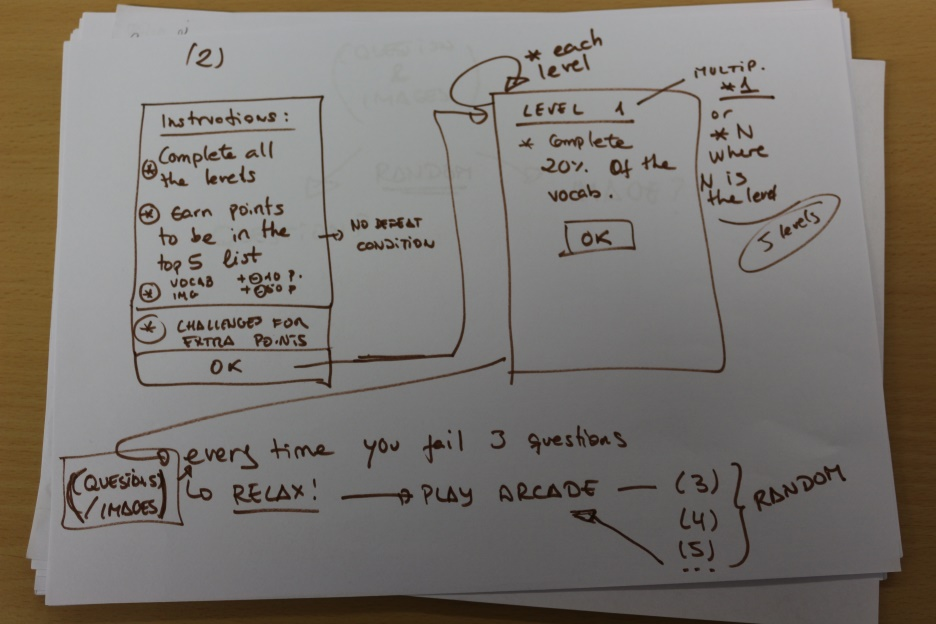 (2)
Instructions:
* Complete all
the levels
* Earn points
to be in the
top 5 list
* VOCAB +⊖10 P.
IMG +⊖50 P
* CHALLENGES FOR
EXTRA POINTS
OK
NO DEFEAT
CONDITION
* each
level
LEVEL 1
* Complete
20% Of the
vocab.
OK
MULTIP.
*1
or
*N
where
N is
the level
5 levels
(QUESTIONS)
/IMAGES)
every time you fail 3 questions
RELAX! → PLAY ARCADE — (3)
(4)
(5)
...
RANDOM